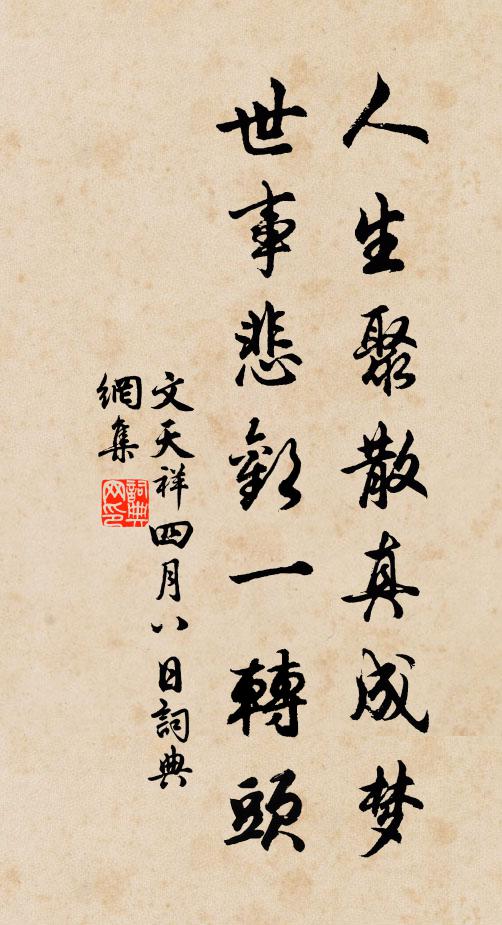 人生聚散真成梦
世事悲歡一轉頭
文天祥四月八日詞典
網集
詞典
网印